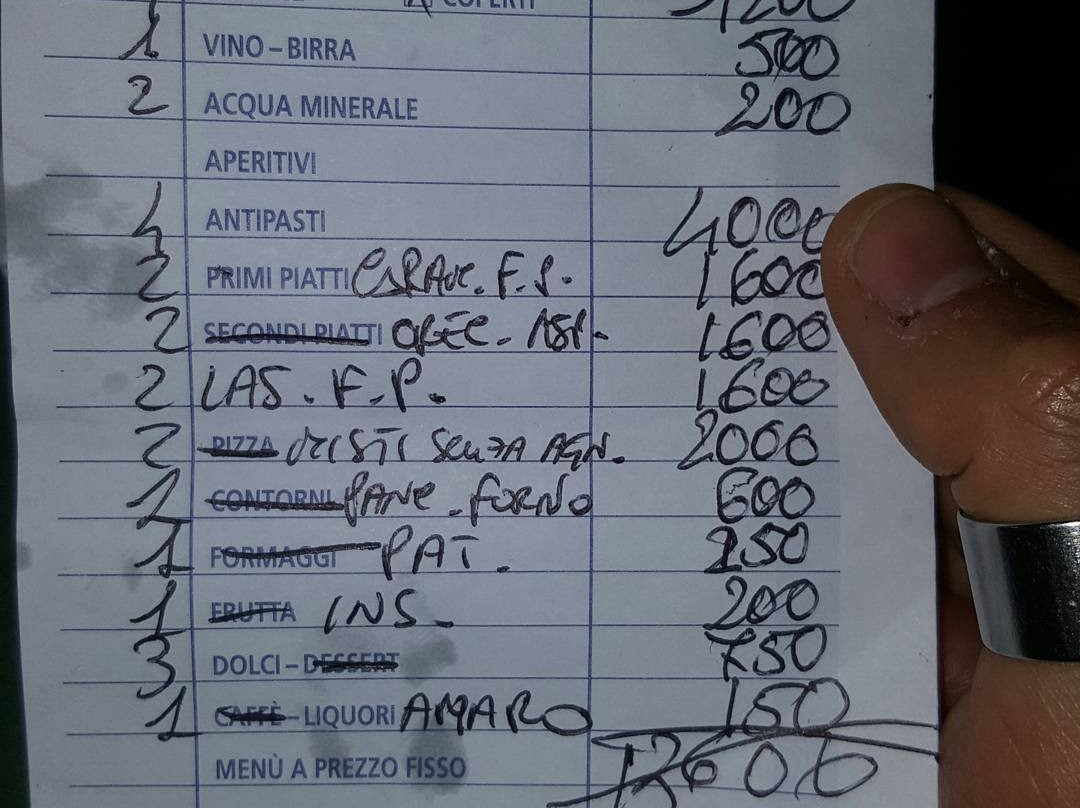 COPERTI 1,200
1 VINO – BIRRA 500
2 ACQUA MINERALE 200
APERITIVI
4 ANTIPASTI 4000
2 PRIMI PIATTI F. 1600
2 SECONDI PIATTI 1600
2 LAS. F.P. 1600
2 PIZZA MISTI SENZA AGN. 2000
1 CONTORNI PANC. FORNO 600
1 FORMAGGI PAT. 250
1 FRUTTA INS. 200
3 DOLCI – DESSERT 750
1 CAFFÈ – LIQUORI AMARO 150
MENÙ A PREZZO FISSO 12600